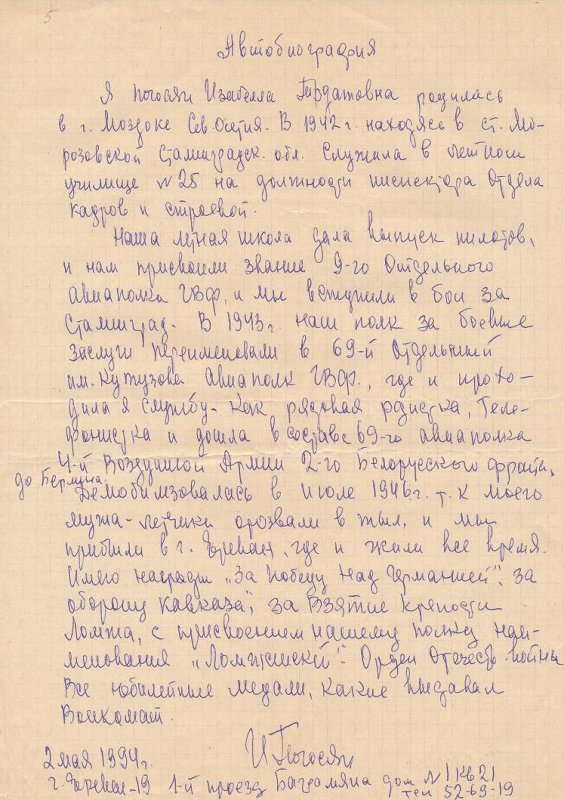 5
Автобиография
Я Погосян Изабелла Трдатовна родилась
в г. Моздоке Сев. Осетия. В 1942 г. находясь в ст. Мо-
розовской Сталинградск. обл. Служила в летном
училище №25 на должности инспектора Отдела
кадров и строевой.
Наша летная школа дала выпуск пилотов,
и нам присвоили звание 9-го Отдельного
Авиаполка ГВФ, и мы вступили в бои за
Сталинград. В 1943 г. наш полк за боевые
заслуги переименовали в 69-й Отдельный
им. Кутузова Авиаполк ГВФ., где и прохо-
дила я службу. Как рядовая радистка, Теле-
фонистка и дошла в составе 69-го авиаполка
4-й Воздушной Армии 2-го Белорусского фронта,
до Берлина.
Демобилизовалась в июле 1946 г. т.к моего
мужа-летчика отозвали в тыл, и мы
прибыли в г. Ереван, где и жили все время.
Имею награды „За Победу над Германией", за
оборону Кавказа", за Взятие крепости
Ломжа, с присвоением нашему полку наи-
менования „Ломжинский". Орден Отечеств. войны
Все юбилейные медали, какие выдавал
Военкомат.
2 мая 1994 г. И Погосян
г. Ереван-19 1-й проезд Баграмяна дом №1 кв 21
тел 52-69-19